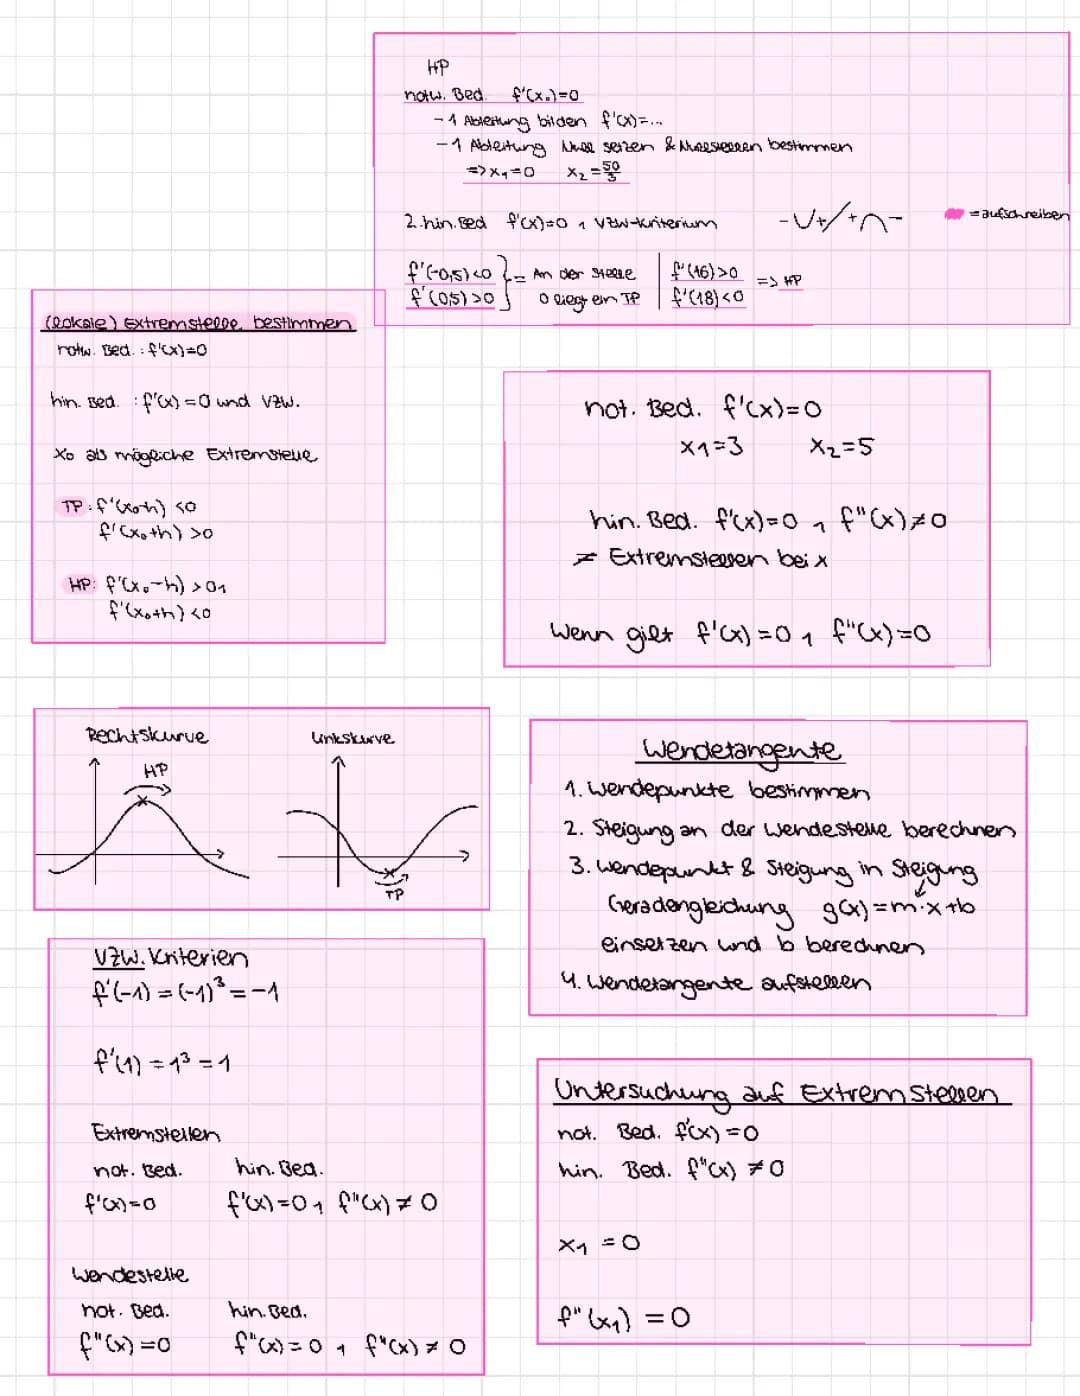 HP
notw. Bed. f'(x₀)=0
- 1 Ableitung bilden f'(x)=...
- 1 Ableitung Null setzen & Nullstellen bestimmen
=> x₁=0 x₂=50/3
2. hin. Bed f'(x)=0 ∧ VZW-Kriterium -∪+/+∩-
=aufschreiben
f'(-0,5)<0 } = An der Stelle f'(16)>0 => HP
f'(0,5)>0 0 liegt ein TP f'(18)<0
(lokale) Extremstelle bestimmen
notw. Bed.: f'(x)=0
hin. Bed. : f'(x)=0 und VZW.
x₀ als mögliche Extremstelle
TP: f'(x₀+h) <0
f'(x₀+h) >0
HP: f'(x₀-h) >0 ∧
f'(x₀+h) <0
not. Bed. f'(x)=0
x₁=3 x₂=5
hin. Bed. f'(x)=0 ∧ f"(x)≠0
≠ Extremstellen bei x
Wenn gilt f'(x)=0 ∧ f"(x)=0
Rechtskurve Linkskurve
HP
TP
Wendetangente
1. Wendepunkte bestimmen
2. Steigung an der Wendestelle berechnen
3. Wendepunkt & Steigung in Steigung
Geradengleichung g(x)=m·x+b
einsetzen und b berechnen
4. Wendetangente aufstellen
VZW. Kriterien
f'(-1) = (-1)³ = -1
f'(1) = 1³ = 1
Extremstellen
not. Bed. hin. Bed.
f'(x)=0 f'(x)=0 ∧ f"(x) ≠ 0
Wendestelle
not. Bed. hin. Bed.
f"(x)=0 f"(x)=0 ∧ f"(x) ≠ 0
Untersuchung auf Extremstellen
not. Bed. f'(x)=0
hin. Bed. f"(x) ≠0
x₁ = 0
f"(x₁) = 0